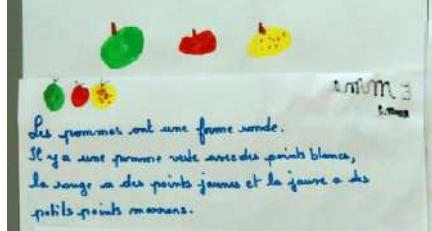 Les pommes ont une forme ronde.
Il y a une pomme verte avec des points blancs,
la rouge a des points jaunes et la jaune a des
petits points marrons.